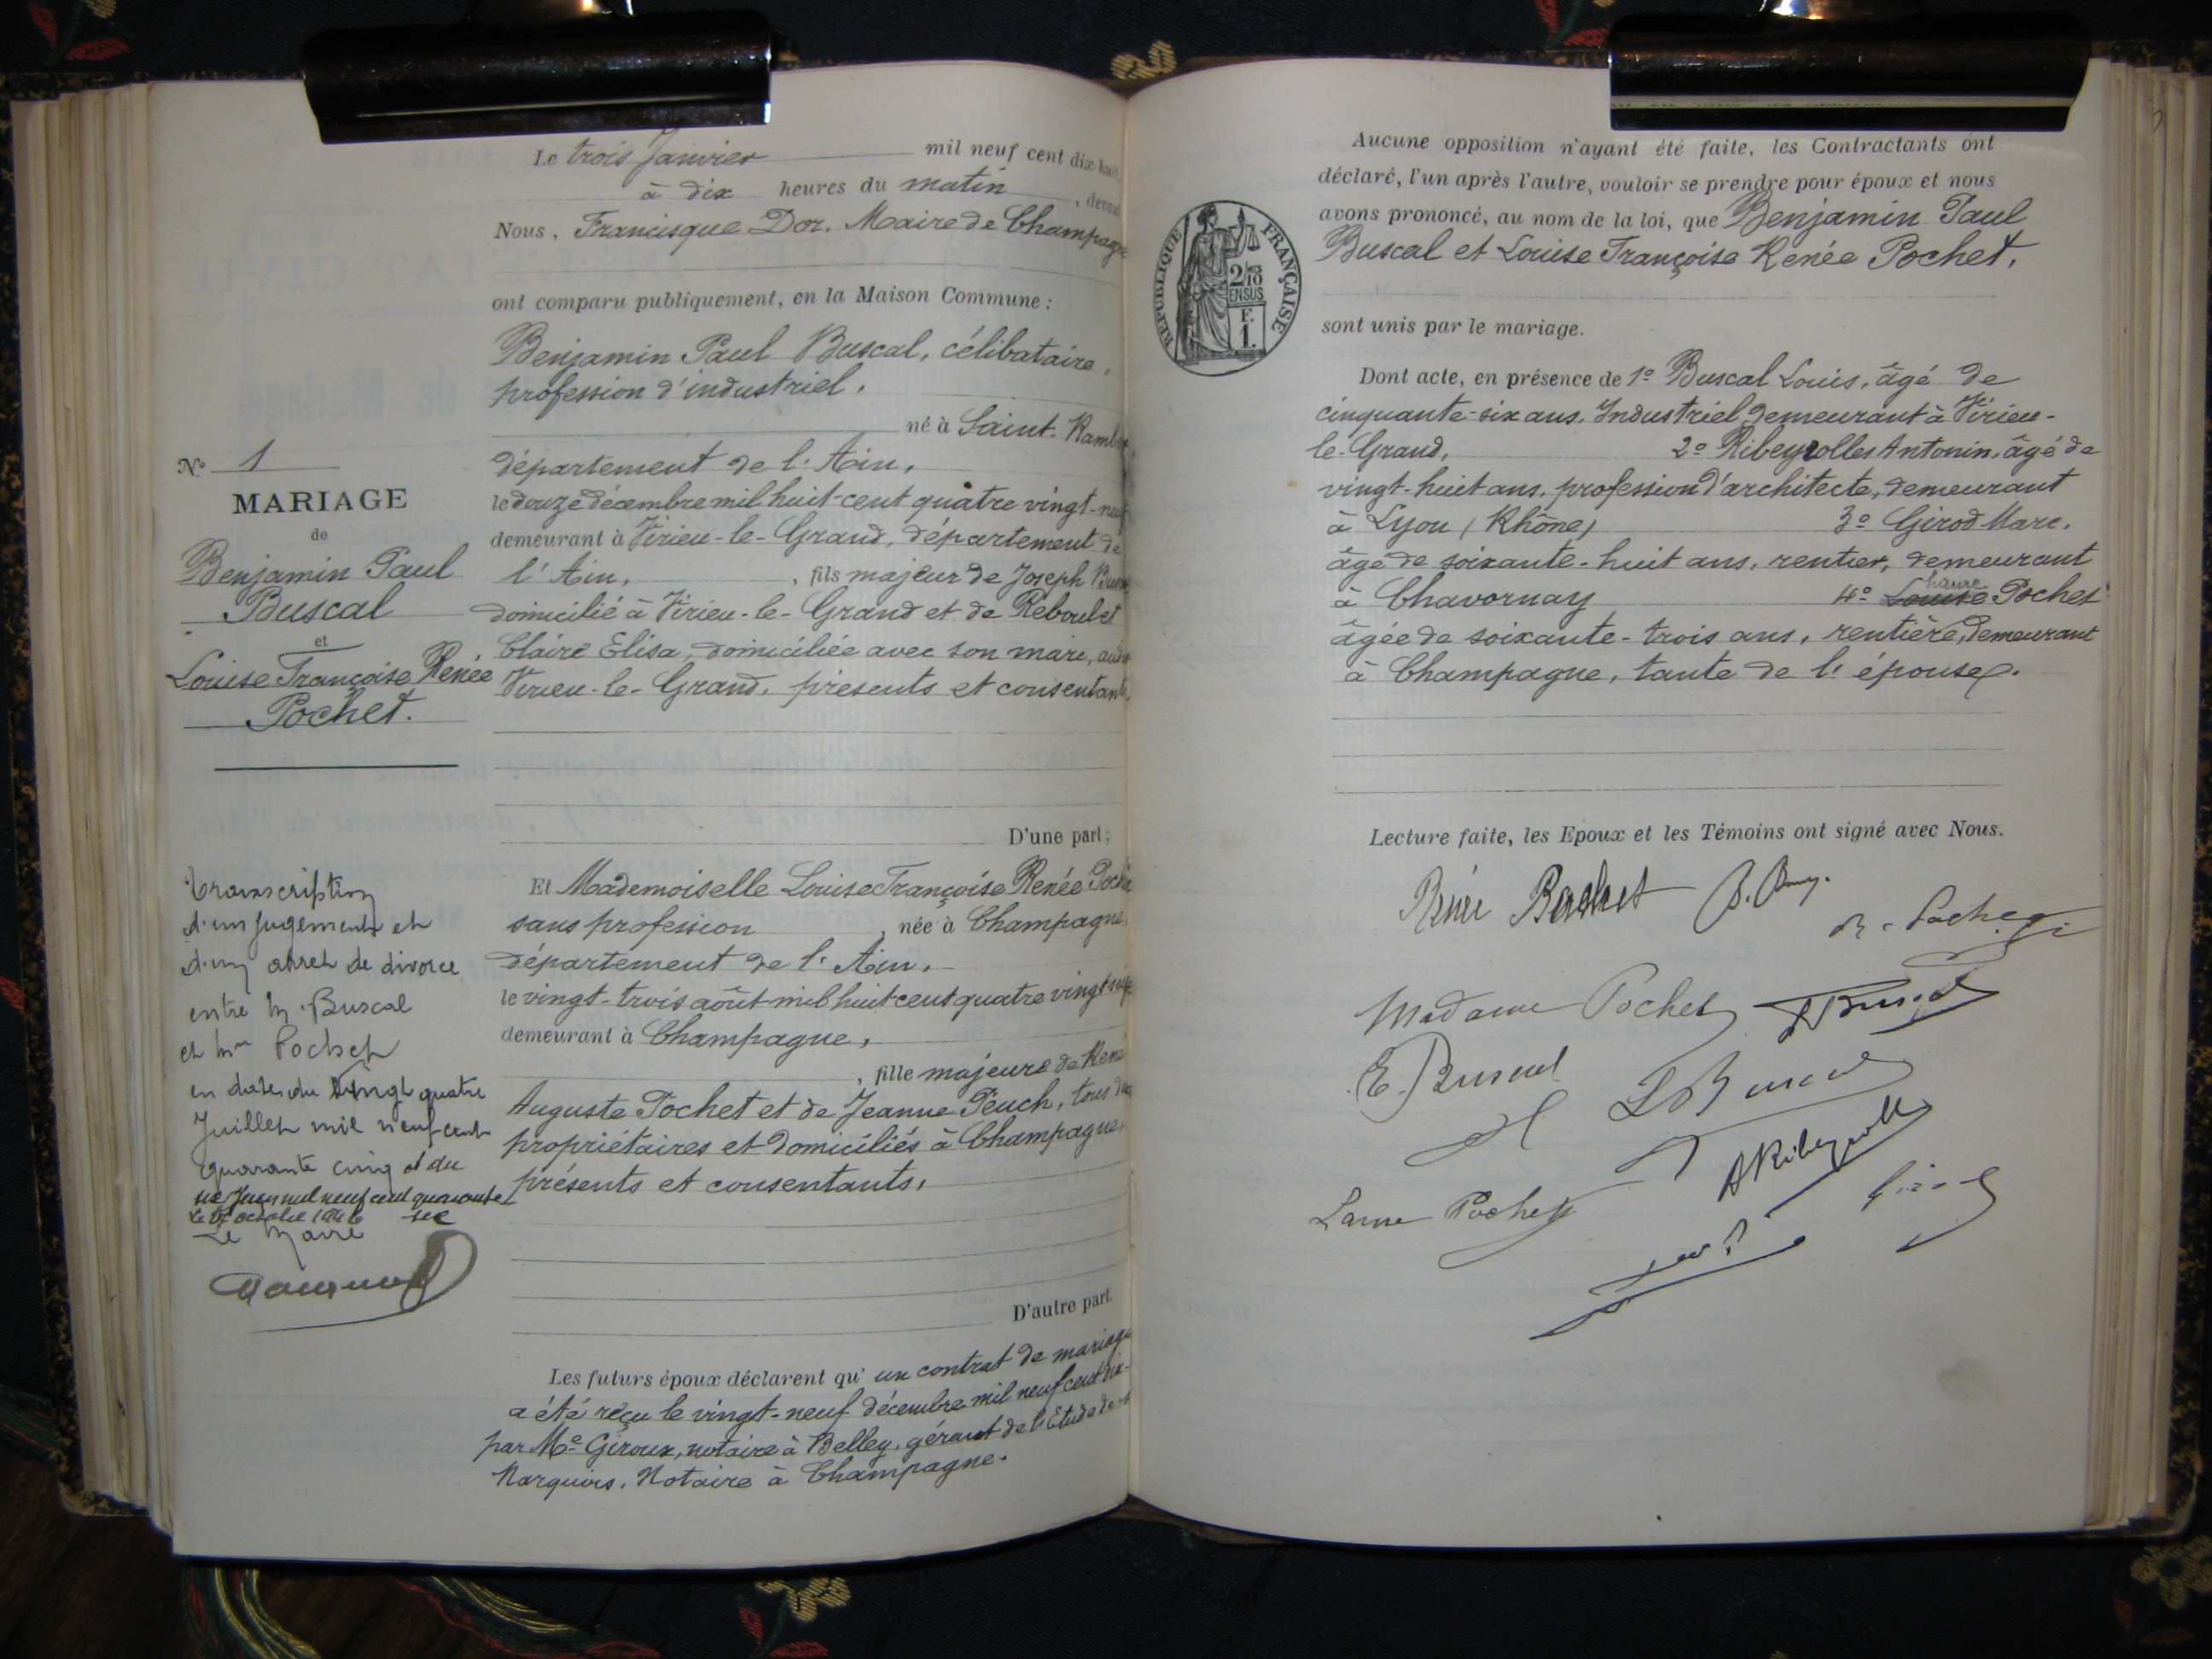 Le trois Janvier mil neuf cent dix-huit
à dix heures du matin, devant
Nous, Francisque Dor, Maire de Champagne
ont comparu publiquement, en la Maison Commune :
Benjamin Paul Buscal, célibataire,
profession d'industriel.
né à Saint-Rambert
département de l'Ain,
le douze décembre mil huit-cent quatre vingt-neuf
demeurant à Virieu-le-Grand, département de
l'Ain, , fils majeur de Joseph Buscal
domicilié à Virieu-le-Grand et de Reboulet
Claire Elisa, domiciliée avec son mari, audit
Virieu-le-Grand, présents et consentants,
D'une part ;
Et Mademoiselle Louise Françoise Renée Pochet
sans profession, née à Champagne,
département de l'Ain,
le vingt-trois août mil huit cent quatre vingt
demeurant à Champagne,
, fille majeure de René
Auguste Pochet et de Jeanne Peuch, tous deux
propriétaires et domiciliés à Champagne,
présents et consentants,
D'autre part.
Les futurs époux déclarent qu'un contrat de mariage
a été reçu le vingt-neuf décembre mil neuf cent dix-
par Me Giroux, notaire à Belley, gérant de l'Etude de
Marquois, Notaire à Champagne.
No 1
MARIAGE
de
Benjamin Paul
Buscal
et
Louise Françoise Renée
Pochet.
transcription
d'un jugement et
d'un arret de divorce
entre M. Buscal
et Mme Pochet
en date du Vingt quatre
Juillet mil neuf cent
quarante cinq et du
six Juin mil neuf cent quarante
six
Le octobre 1946
Le Maire
Aucune opposition n'ayant été faite, les Contractants ont
déclaré, l'un après l'autre, vouloir se prendre pour époux et nous
avons prononcé, au nom de la loi, que Benjamin Paul
Buscal et Louise Françoise Renée Pochet,
sont unis par le mariage.
RÉPUBLIQUE FRANÇAISE
2/10
EN SUS
F.
1.
Dont acte, en présence de 1o Buscal Louis, âgé de
cinquante-six ans, Industriel, demeurant à Virieu-
le-Grand, 2o Ribeyrolles Antonin, âgé de
vingt-huit ans, profession d'architecte, demeurant
à Lyon (Rhône) 3o Girod Marc,
âgé de soixante-huit ans, rentier, demeurant
à Chavornay 4o Louise Laure Pochet
âgée de soixante-trois ans, rentière, demeurant
à Champagne, tante de l'épouse.
Lecture faite, les Epoux et les Témoins ont signé avec Nous.
Renée Pochet
R. Pochet
Madame Pochet
E. Buscal
L Buscal
A Ribeyrolles
Laure Pochet
Girod